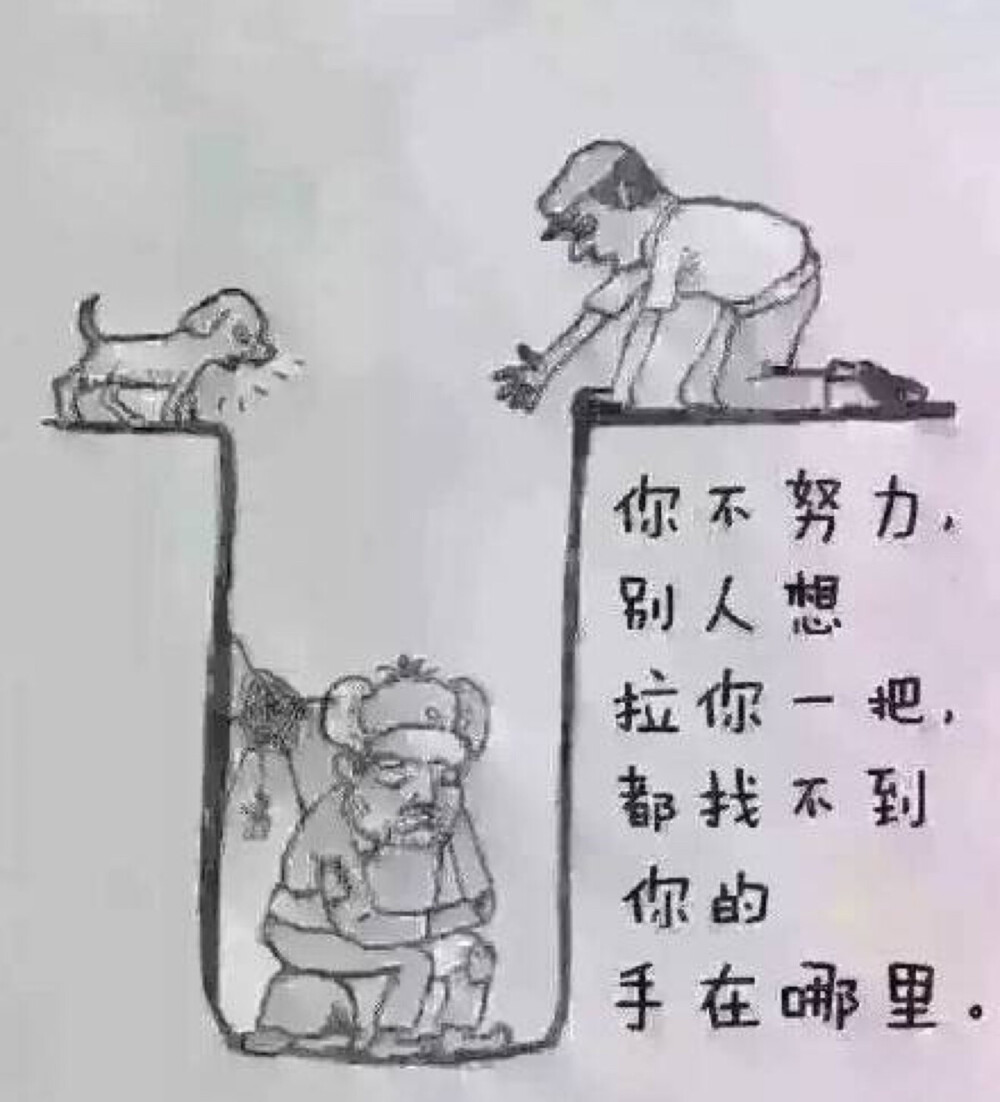 你不努力,
别人想
拉你一把,
都找不到
你的
手在哪里。